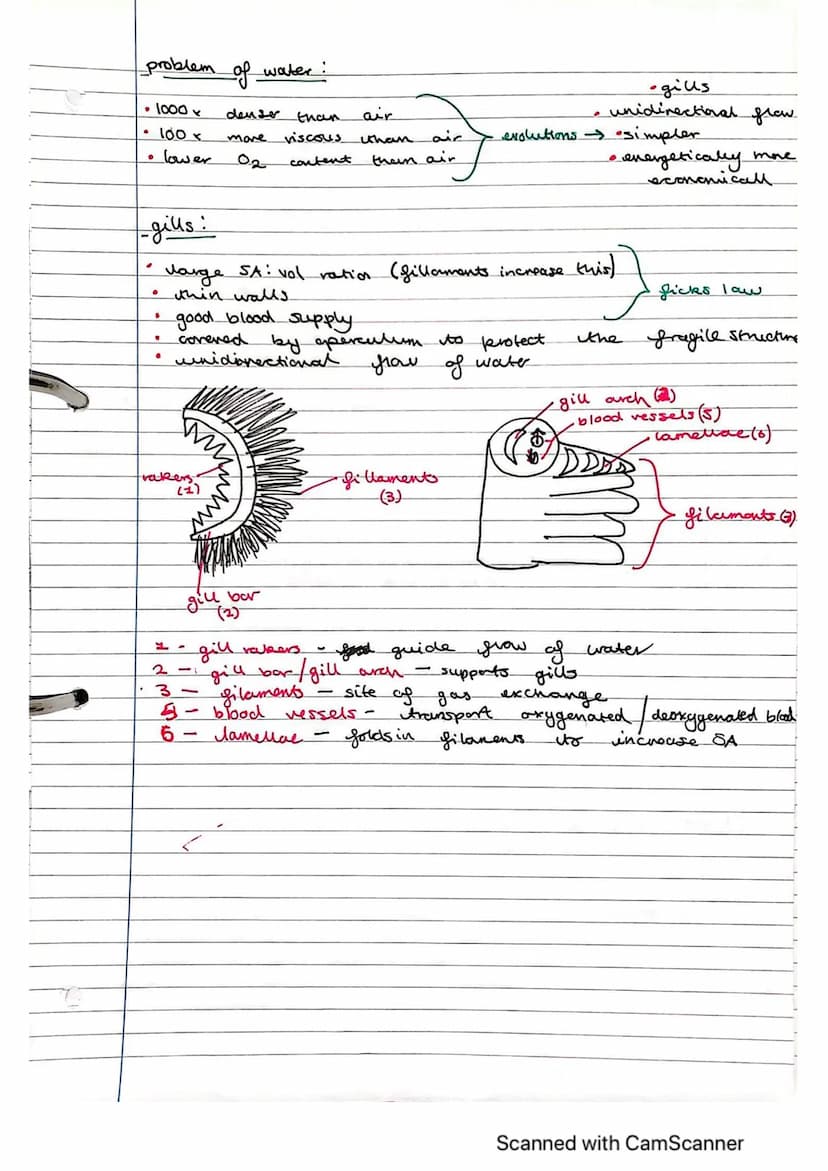 problem of water:
• 1000x denser than air
• 100x more viscous than air
• lower O2 content than air
evolutions →
• gills
• unidirectional flow
• simpler
• energetically more
economicall
- gills:
• large SA: vol ration (fillaments increase this)
• thin walls
• good blood supply
ficks law
• covered by operculum to protect the fragile structure
• unidirectional flow of water
rakers
(1)
fillaments
(3)
gill bar
(2)
gill arch (2)
blood vessels (5)
lamellae (6)
filaments (3)
1 - gill rakers - guide flow of water
2 - gill bar/gill arch - supports gills
3 - filaments - site of gas exchange
5 - blood vessels - transport oxygenated / deoxygenated blood
6 - lamellae - folds in filaments to increase SA
Scanned with CamScanner